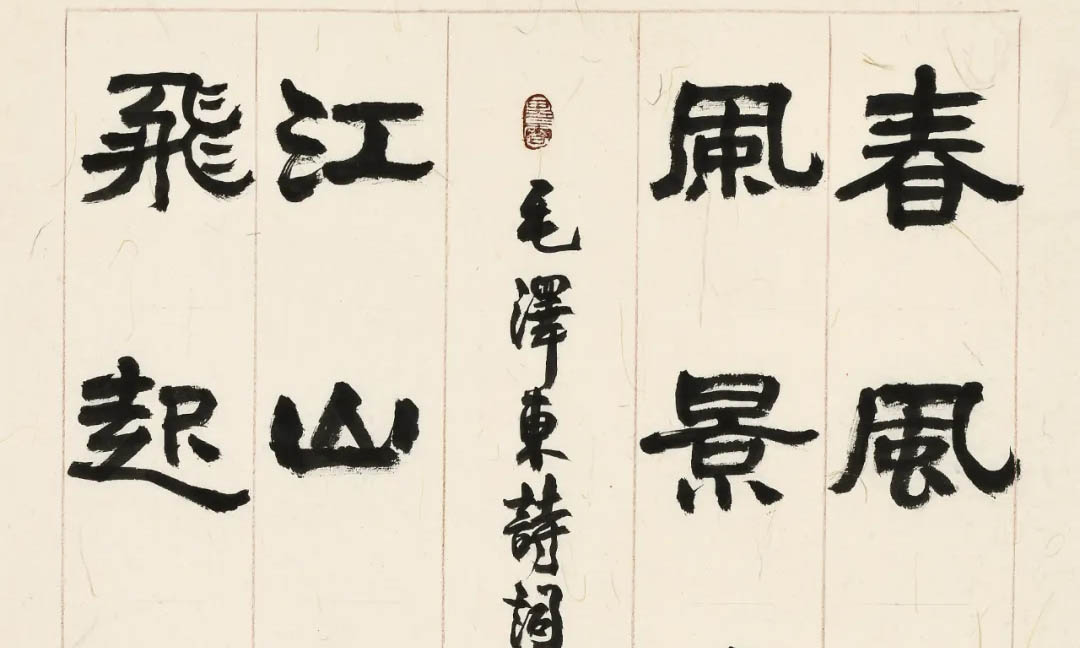 春風
風景
毛澤東詩詞
江山
飛起